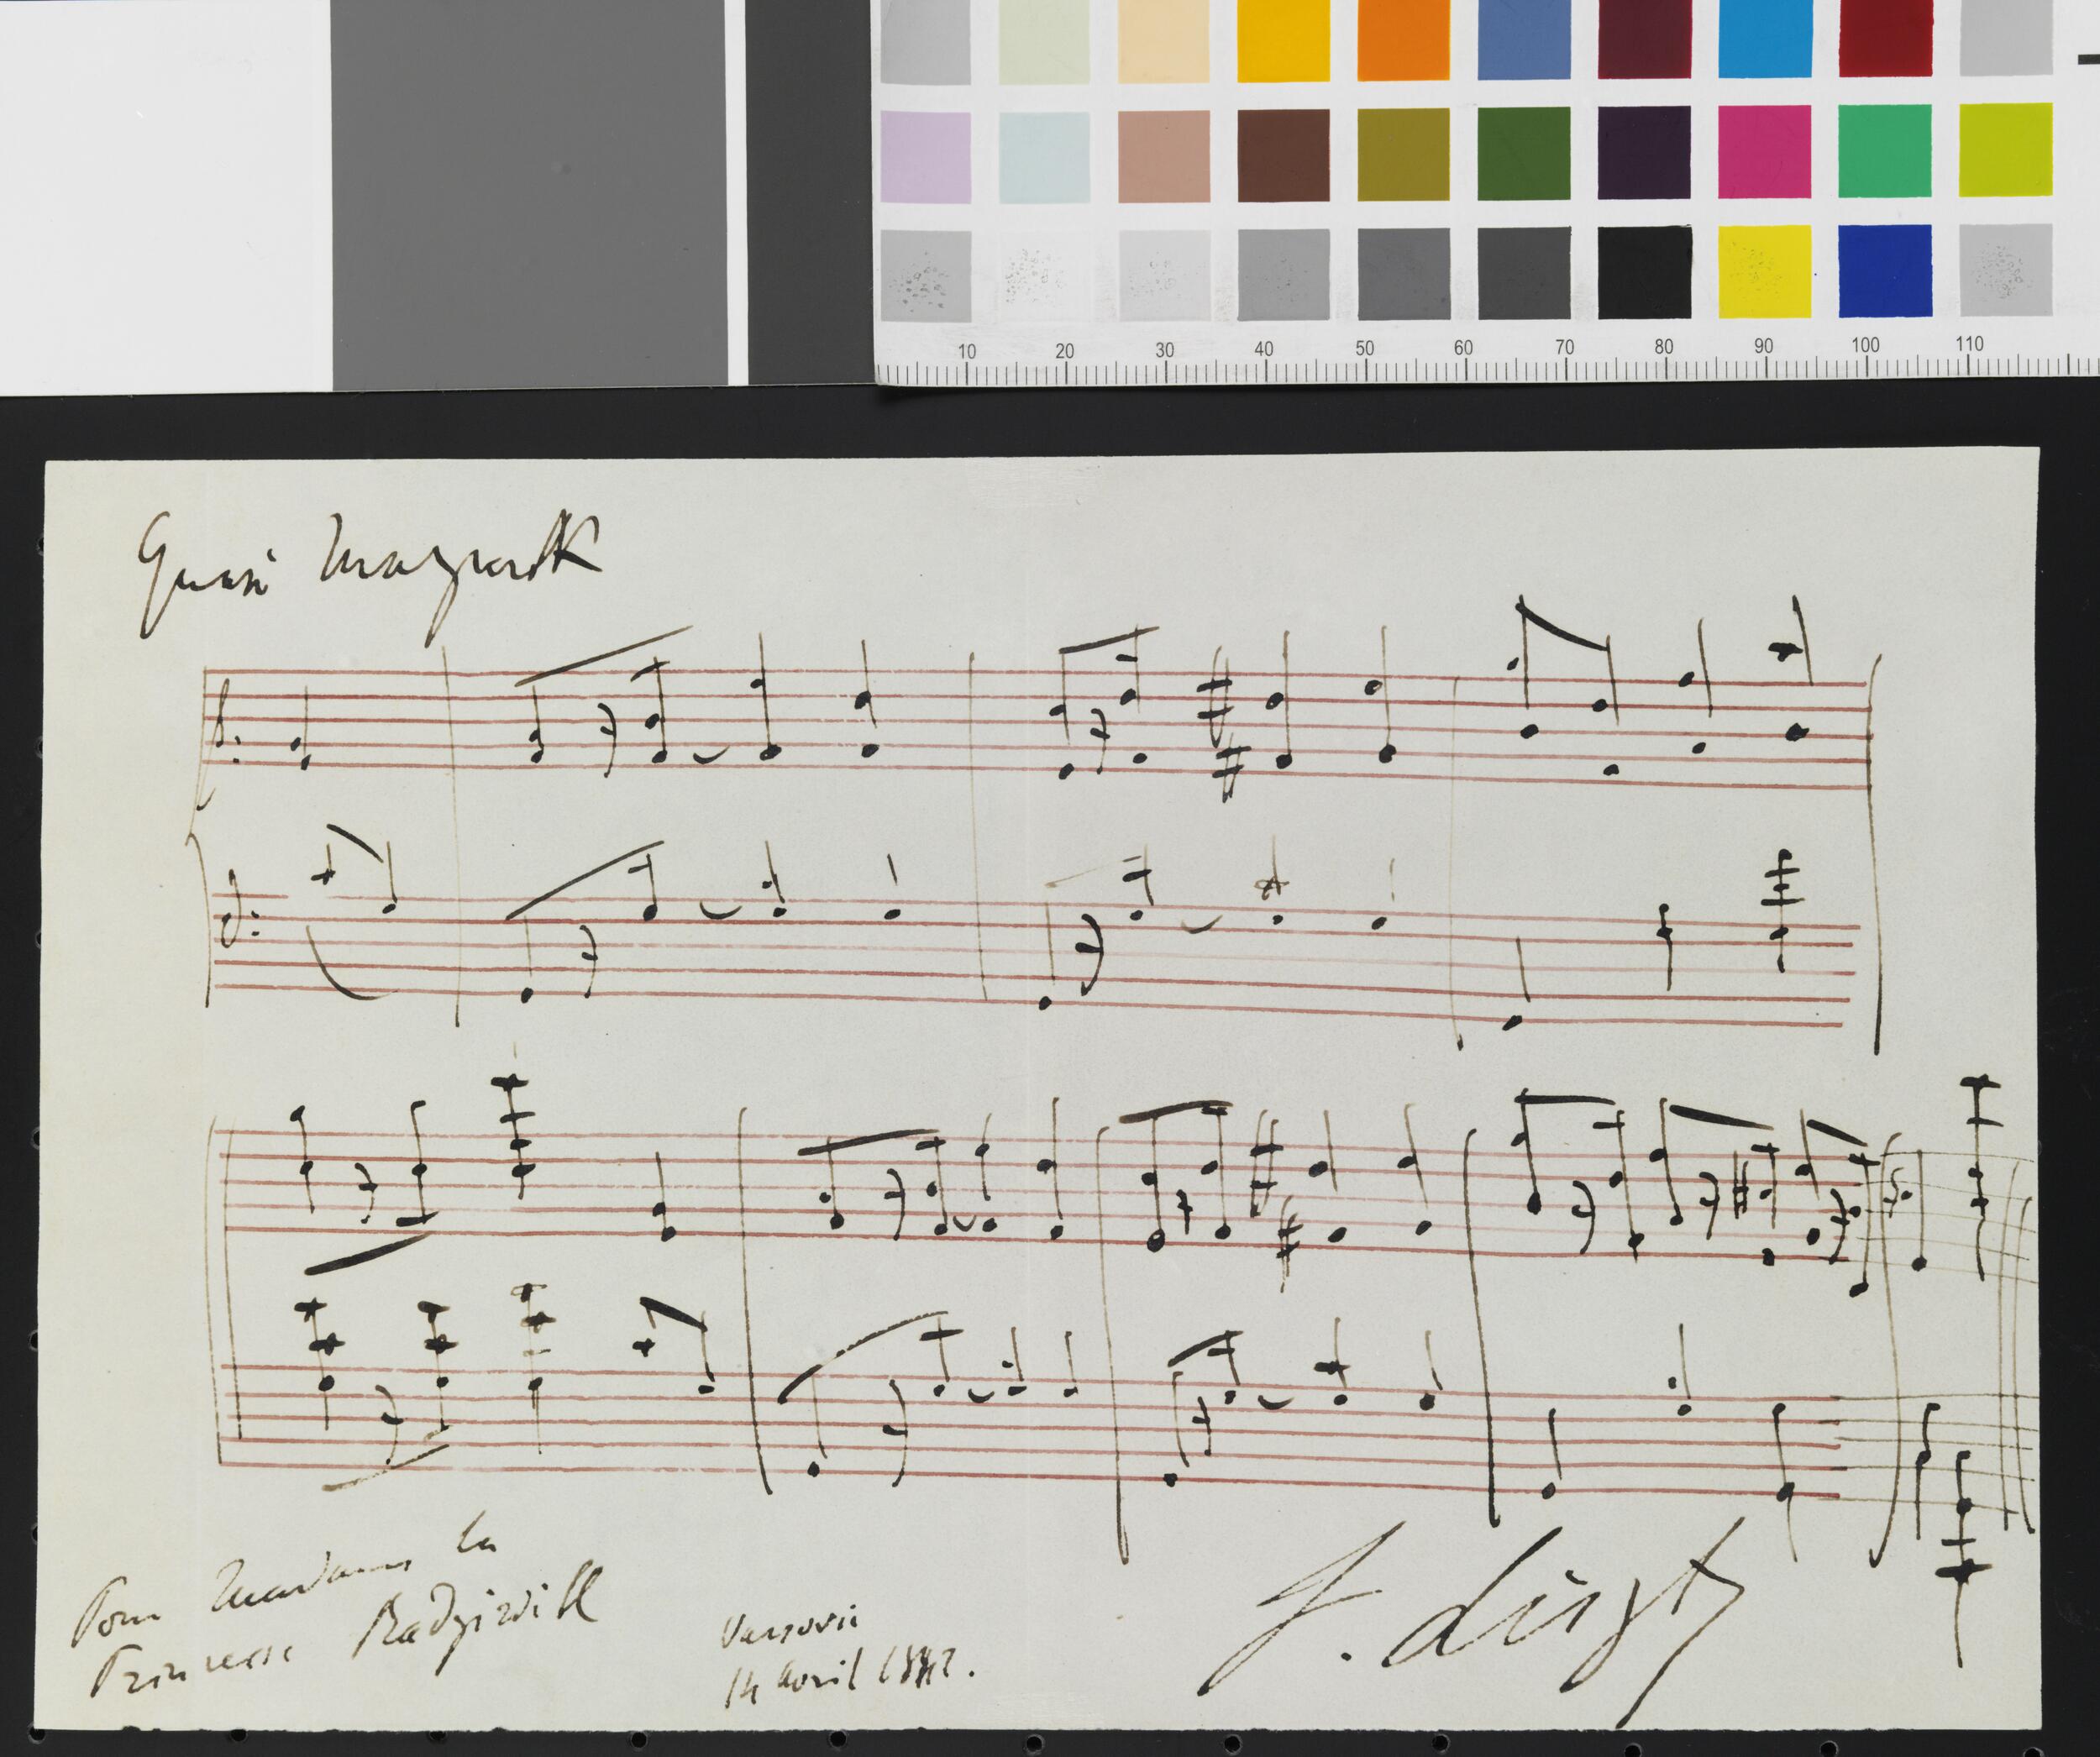 10 20 30 40 50 60 70 80 90 100 110
Quasi Mazourk
Pour Madame la
Princesse Radziwill
Varsovie
14 avril
F. Liszt